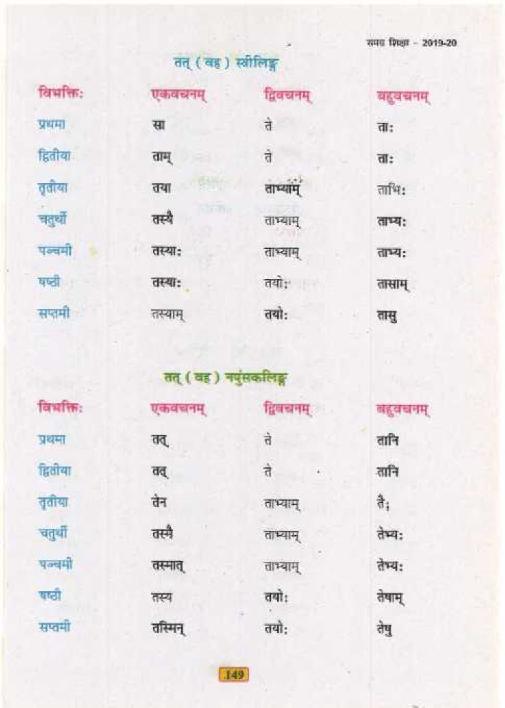 समग्र शिक्षा - 2019-20
तत् ( वह ) स्त्रीलिङ्ग
विभक्तिः एकवचनम् द्विवचनम् बहुवचनम्
प्रथमा सा ते ताः
द्वितीया ताम् ते ताः
तृतीया तया ताभ्याम् ताभिः
चतुर्थी तस्यै ताभ्याम् ताभ्यः
पञ्चमी तस्याः ताभ्याम् ताभ्यः
षष्ठी तस्याः तयोः तासाम्
सप्तमी तस्याम् तयोः तासु
तत् ( वह ) नपुंसकलिङ्ग
विभक्तिः एकवचनम् द्विवचनम् बहुवचनम्
प्रथमा तत् ते तानि
द्वितीया तत् ते तानि
तृतीया तेन ताभ्याम् तैः
चतुर्थी तस्मै ताभ्याम् तेभ्यः
पञ्चमी तस्मात् ताभ्याम् तेभ्यः
षष्ठी तस्य तयोः तेषाम्
सप्तमी तस्मिन् तयोः तेषु
149